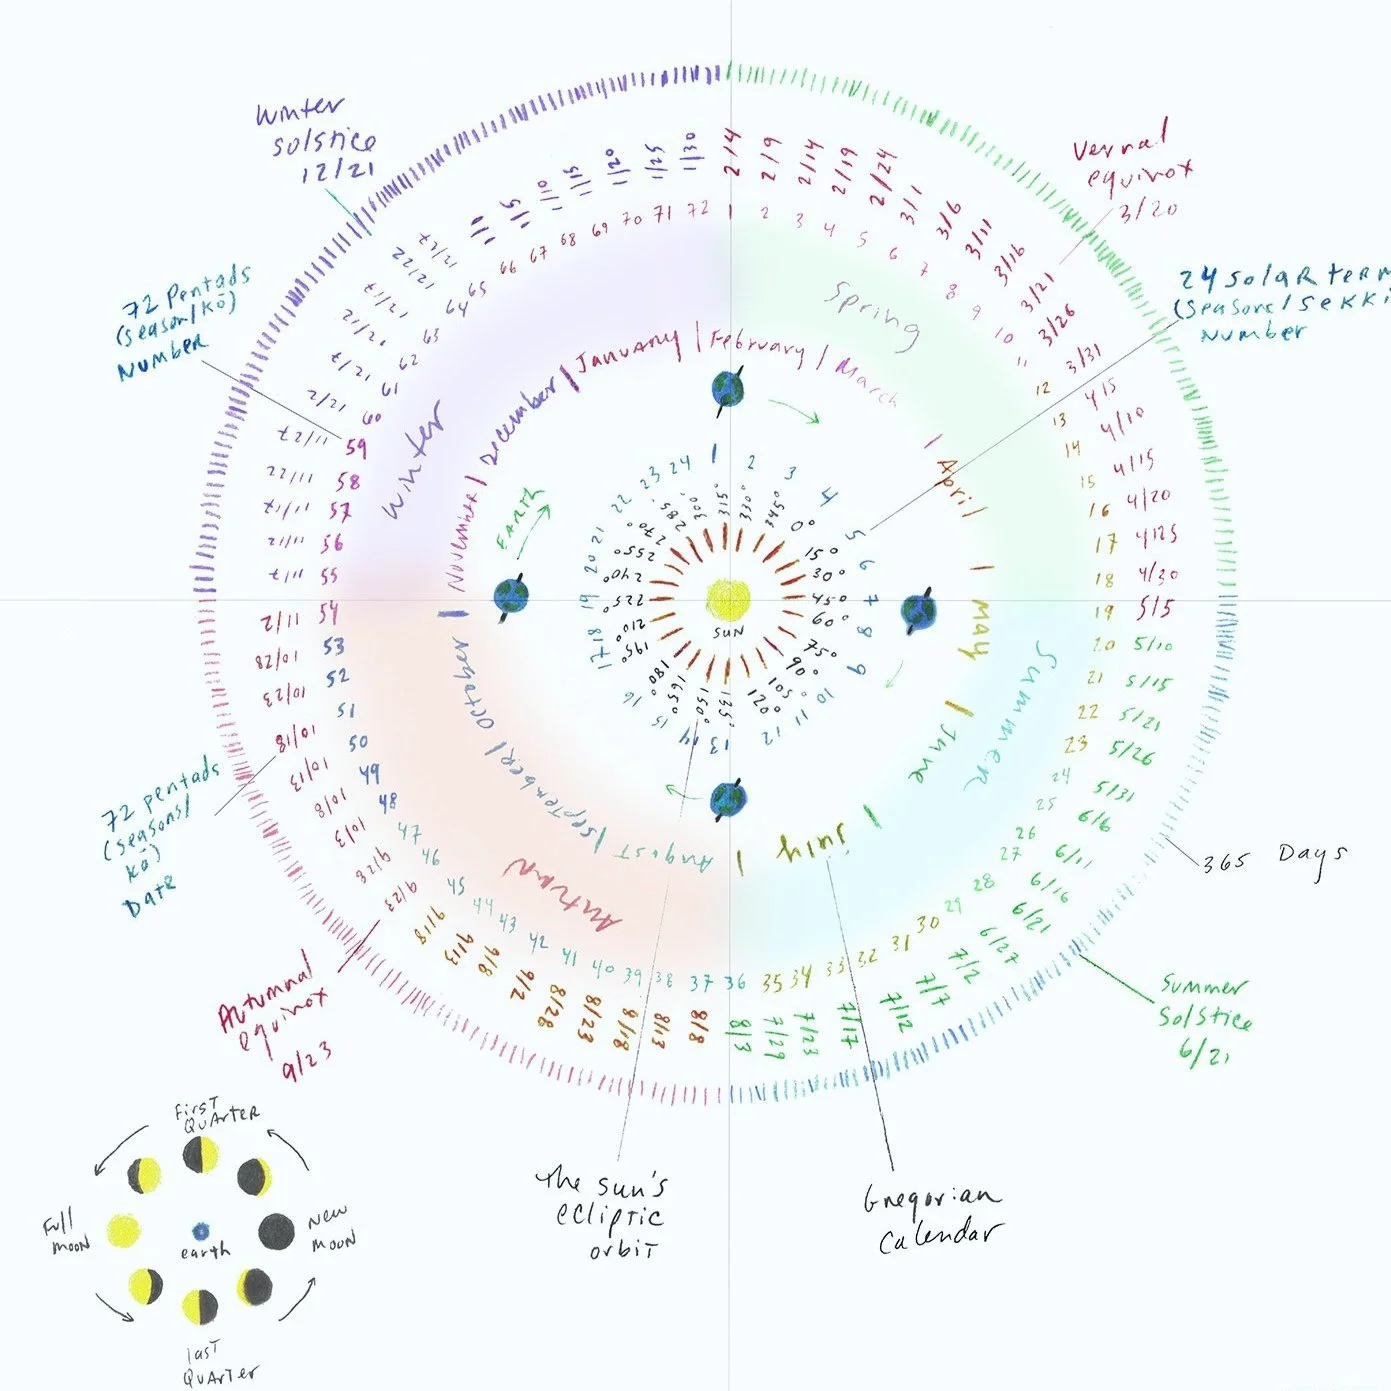 Winter
solstice
12/21
Vernal
equinox
3/20
72 Pentads
(season/kō)
Number
24 solar term
(seasons/sekki
Number
72 pentads
(seasons/
kō)
Date
365 Days
Autumnal
equinox
9/23
Summer
Solstice
6/21
The sun's
ecliptic
orbit
Gregorian
calendar
2/4
2/9
2/14
2/19
2/24
3/1
3/6
3/11
3/16
3/21
3/26
3/31
4/5
4/10
4/15
4/20
4/25
4/30
5/5
5/10
5/15
5/21
5/26
5/31
6/6
6/11
6/16
6/21
6/27
7/2
7/7
7/12
7/17
7/23
7/29
8/3
8/8
8/13
8/18
8/23
8/28
9/2
9/8
9/13
9/18
9/23
9/28
10/3
10/8
10/13
10/18
10/23
10/28
11/2
11/7
11/12
11/17
11/22
11/27
12/2
12/7
12/12
12/17
12/22
12/27
1/5
1/10
1/15
1/20
1/25
1/30
1
2
3
4
5
6
7
8
9
10
11
12
13
14
15
16
17
18
19
20
21
22
23
24
25
26
27
28
29
30
31
32
33
34
35
36
37
38
39
40
41
42
43
44
45
46
47
48
49
50
51
52
53
54
55
56
57
58
59
60
61
62
63
64
65
66
67
68
69
70
71
72
Spring
Summer
Autumn
Winter
January
February
March
April
May
June
July
August
September
October
November
December
Earth
1
2
3
4
5
6
7
8
9
10
11
12
13
14
15
16
17
18
19
20
21
22
23
24
315°
330°
345°
0°
15°
30°
45°
60°
75°
90°
105°
120°
135°
150°
165°
180°
195°
210°
225°
240°
255°
270°
285°
300°
SUN
First
Quarter
Full
moon
earth
New
moon
last
Quarter